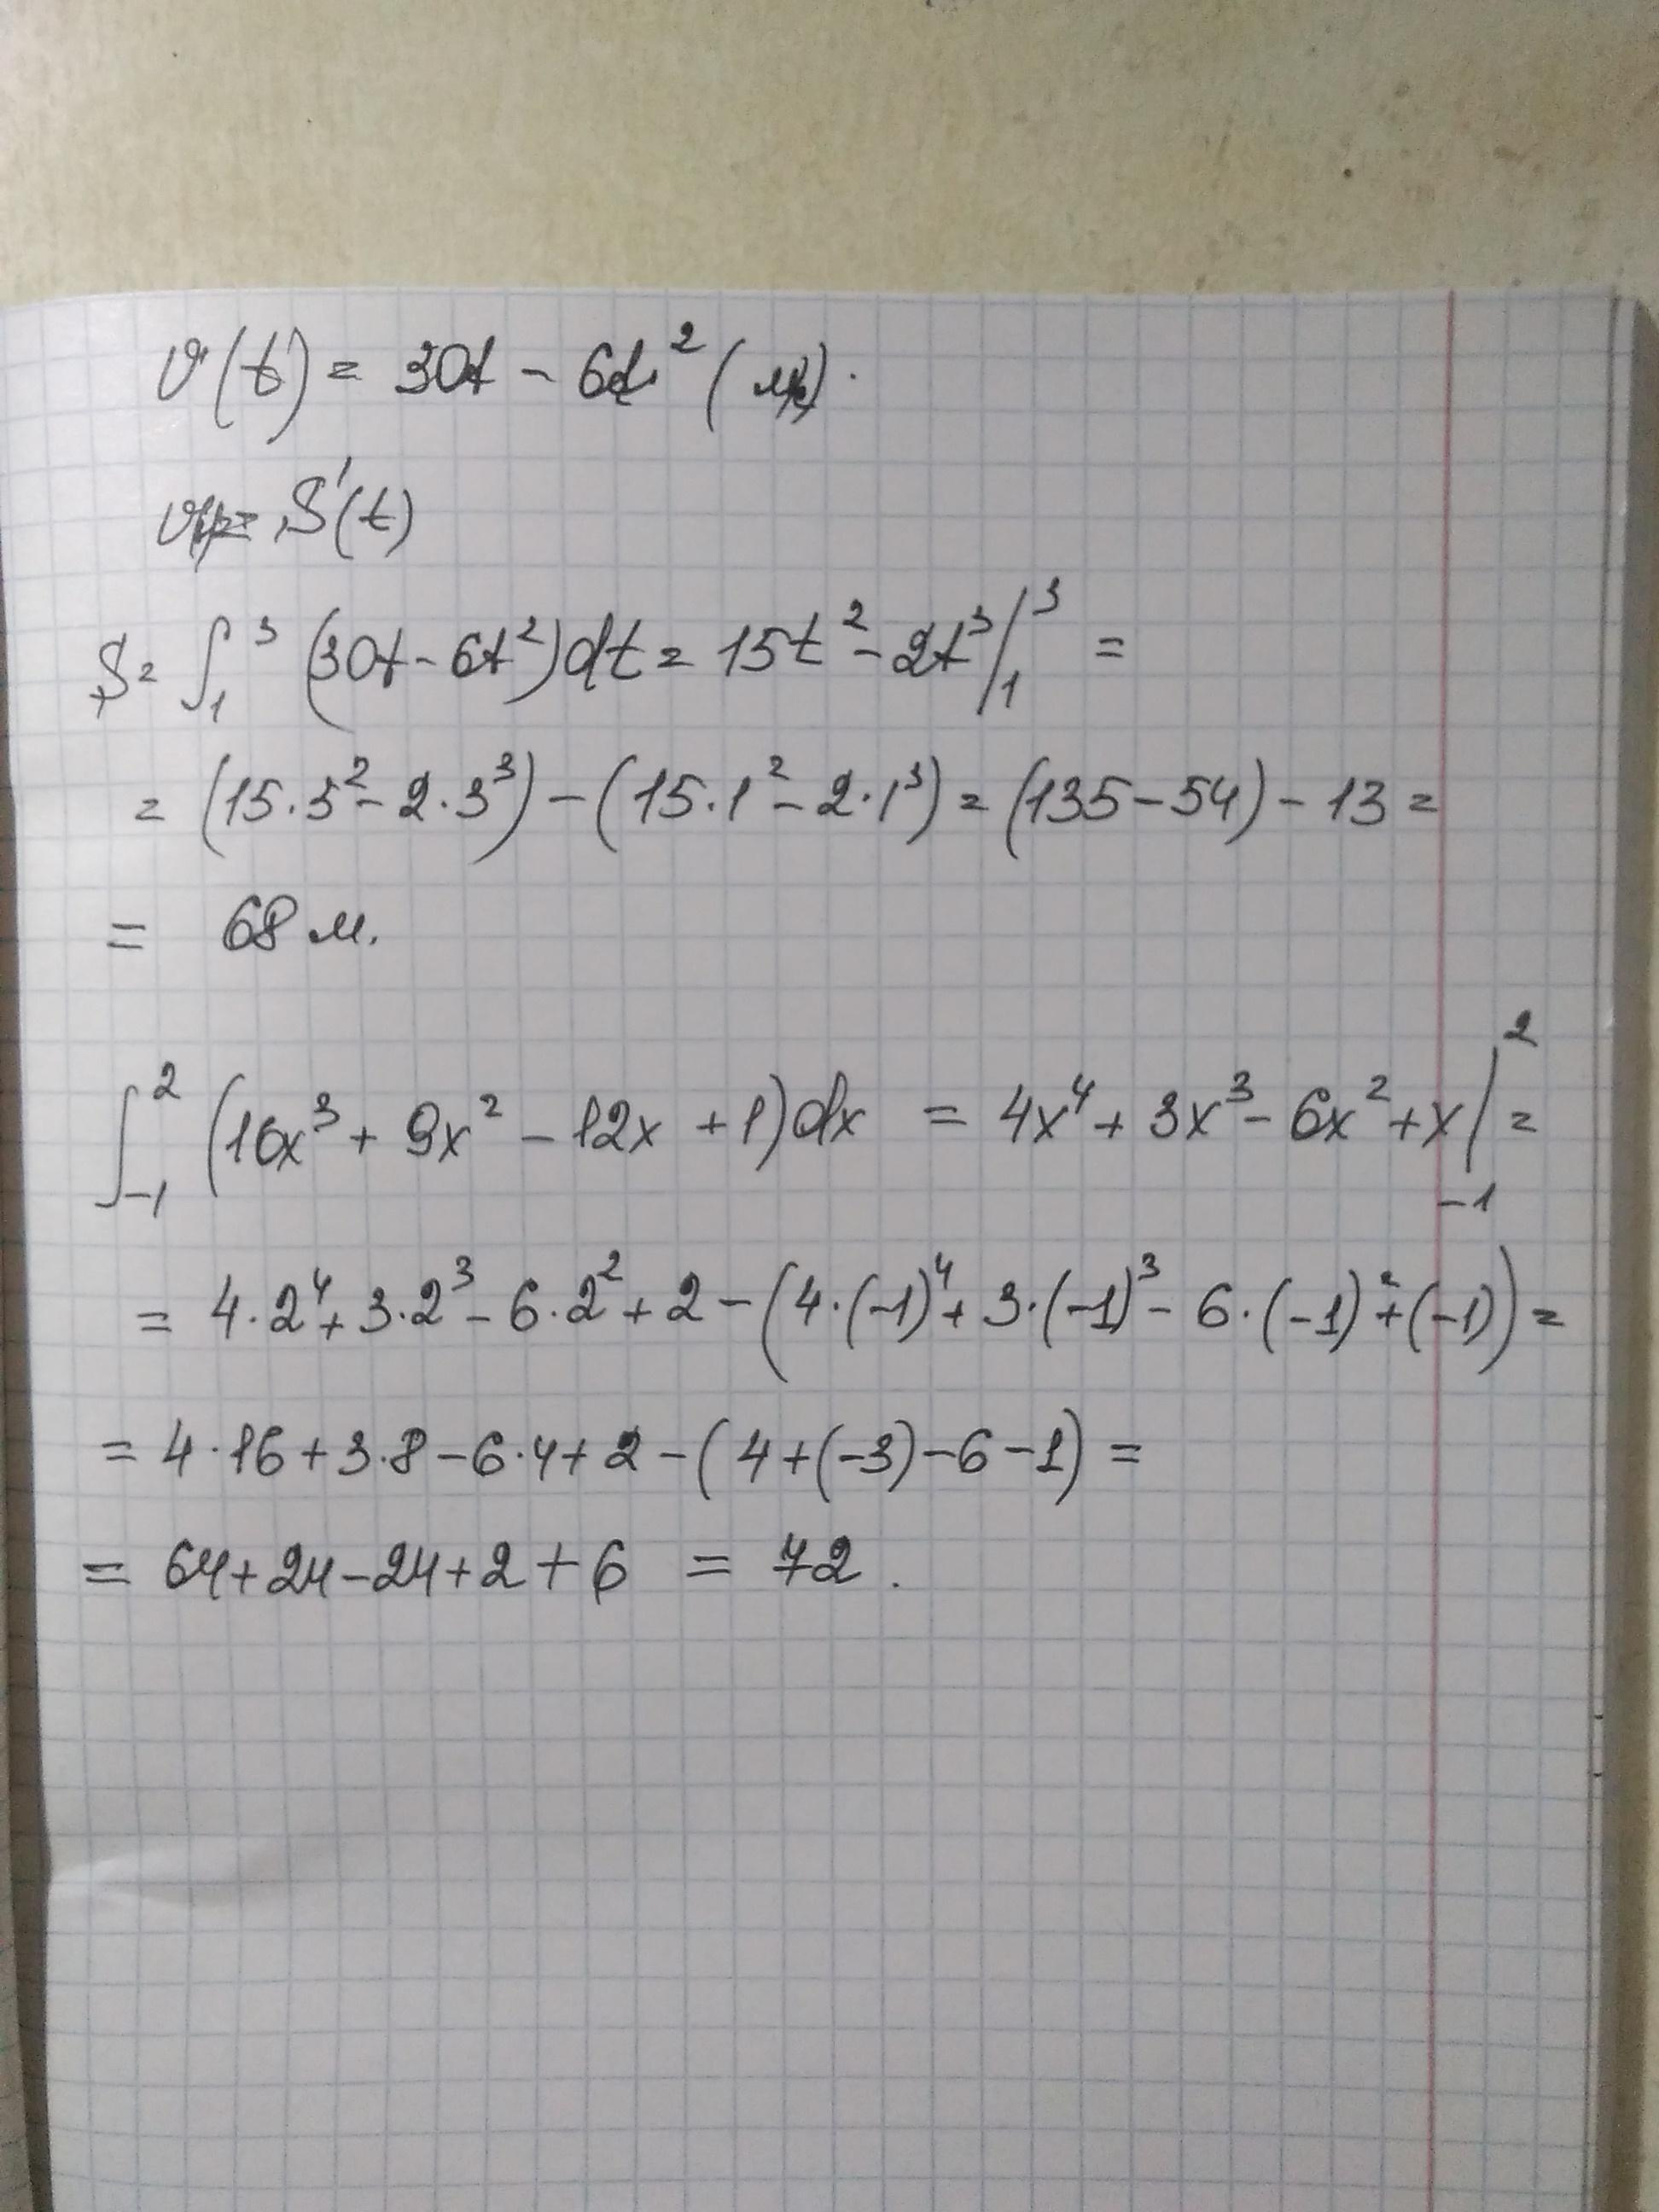 v(t) = 30t - 6t² (м/с).
v = S'(t)
S = ∫₁³ (30t - 6t²)dt = 15t² - 2t³ |₁³ =
= (15·3² - 2·3³) - (15·1² - 2·1³) = (135 - 54) - 13 =
= 68 м.
∫₋₁² (16x³ + 9x² - 12x + 1)dx = 4x⁴ + 3x³ - 6x² + x |₋₁² =
= 4·2⁴ + 3·2³ - 6·2² + 2 - (4·(-1)⁴ + 3·(-1)³ - 6·(-1)² + (-1)) =
= 4·16 + 3·8 - 6·4 + 2 - (4 + (-3) - 6 - 1) =
= 64 + 24 - 24 + 2 + 6 = 72.